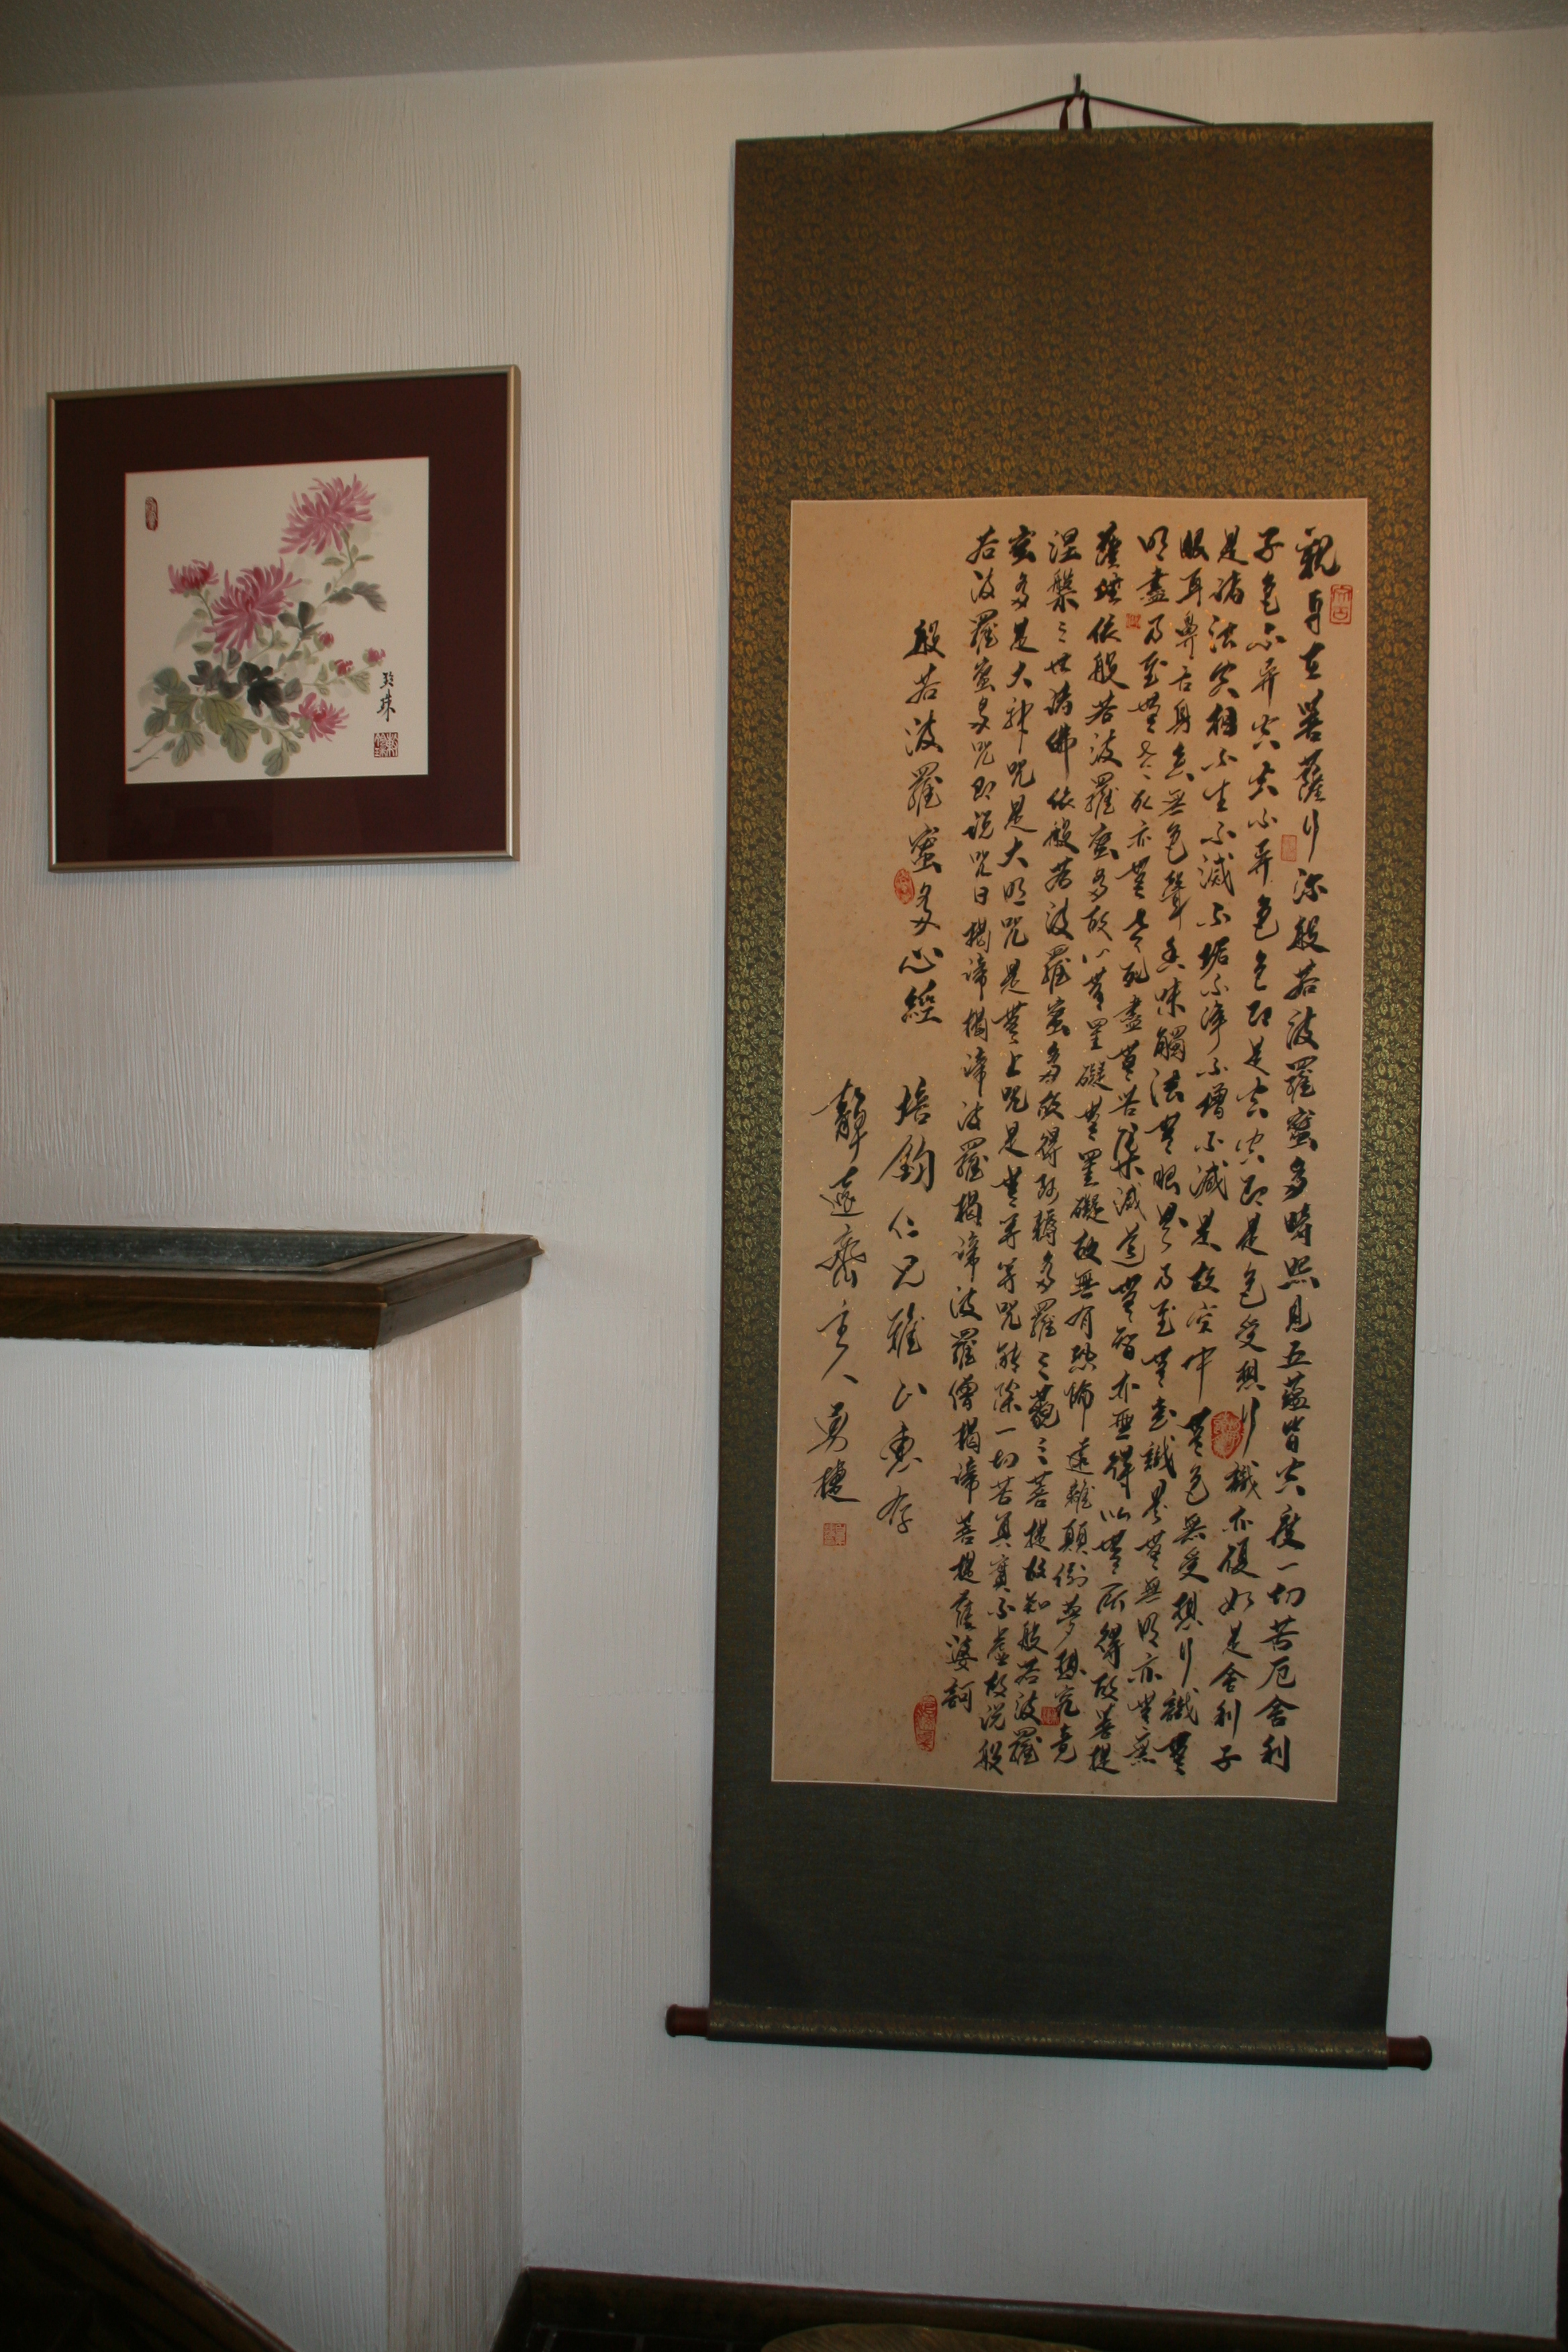 觀自在菩薩行深般若波羅蜜多時照見五蘊皆空度一切苦厄舍利
子色不異空空不異色色即是空空即是色受想行識亦復如是舍利子
是諸法空相不生不滅不垢不淨不增不減是故空中無色無受想行識無
眼耳鼻舌身意無色聲香味觸法無眼界乃至無意識界無無明亦無無
明盡乃至無老死亦無老死盡無苦集滅道無智亦無得以無所得故菩提
薩埵依般若波羅蜜多故心無罣礙無罣礙故無有恐怖遠離顛倒夢想究竟
涅槃三世諸佛依般若波羅蜜多故得阿耨多羅三藐三菩提故知般若波羅
蜜多是大神咒是大明咒是無上咒是無等等咒能除一切苦真實不虛故說般
若波羅蜜多咒即說咒曰揭諦揭諦波羅揭諦波羅僧揭諦菩提薩婆訶
般若波羅蜜多心經
培鈞仁兄雅正惠存
靜遠齋主人
珠